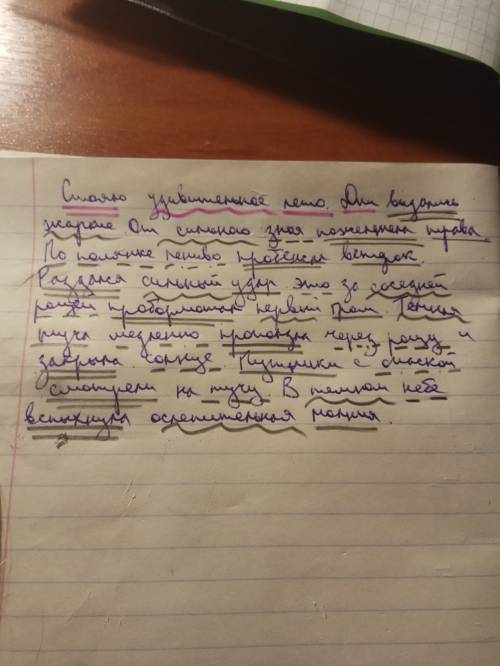 Стояло удивительное лето. Дни выдались
жаркие От сильного зноя пожелтела трава.
По полянке лениво пробежал ветерок.
Раздался сильный удар это за соседней
рощей пробормотал первый гром. Темная
туча медленно проползла через рощу и
закрыла солнце. Путники с опаской
смотрели на тучу. В темном небе
вспыхнула ослепительная молния.